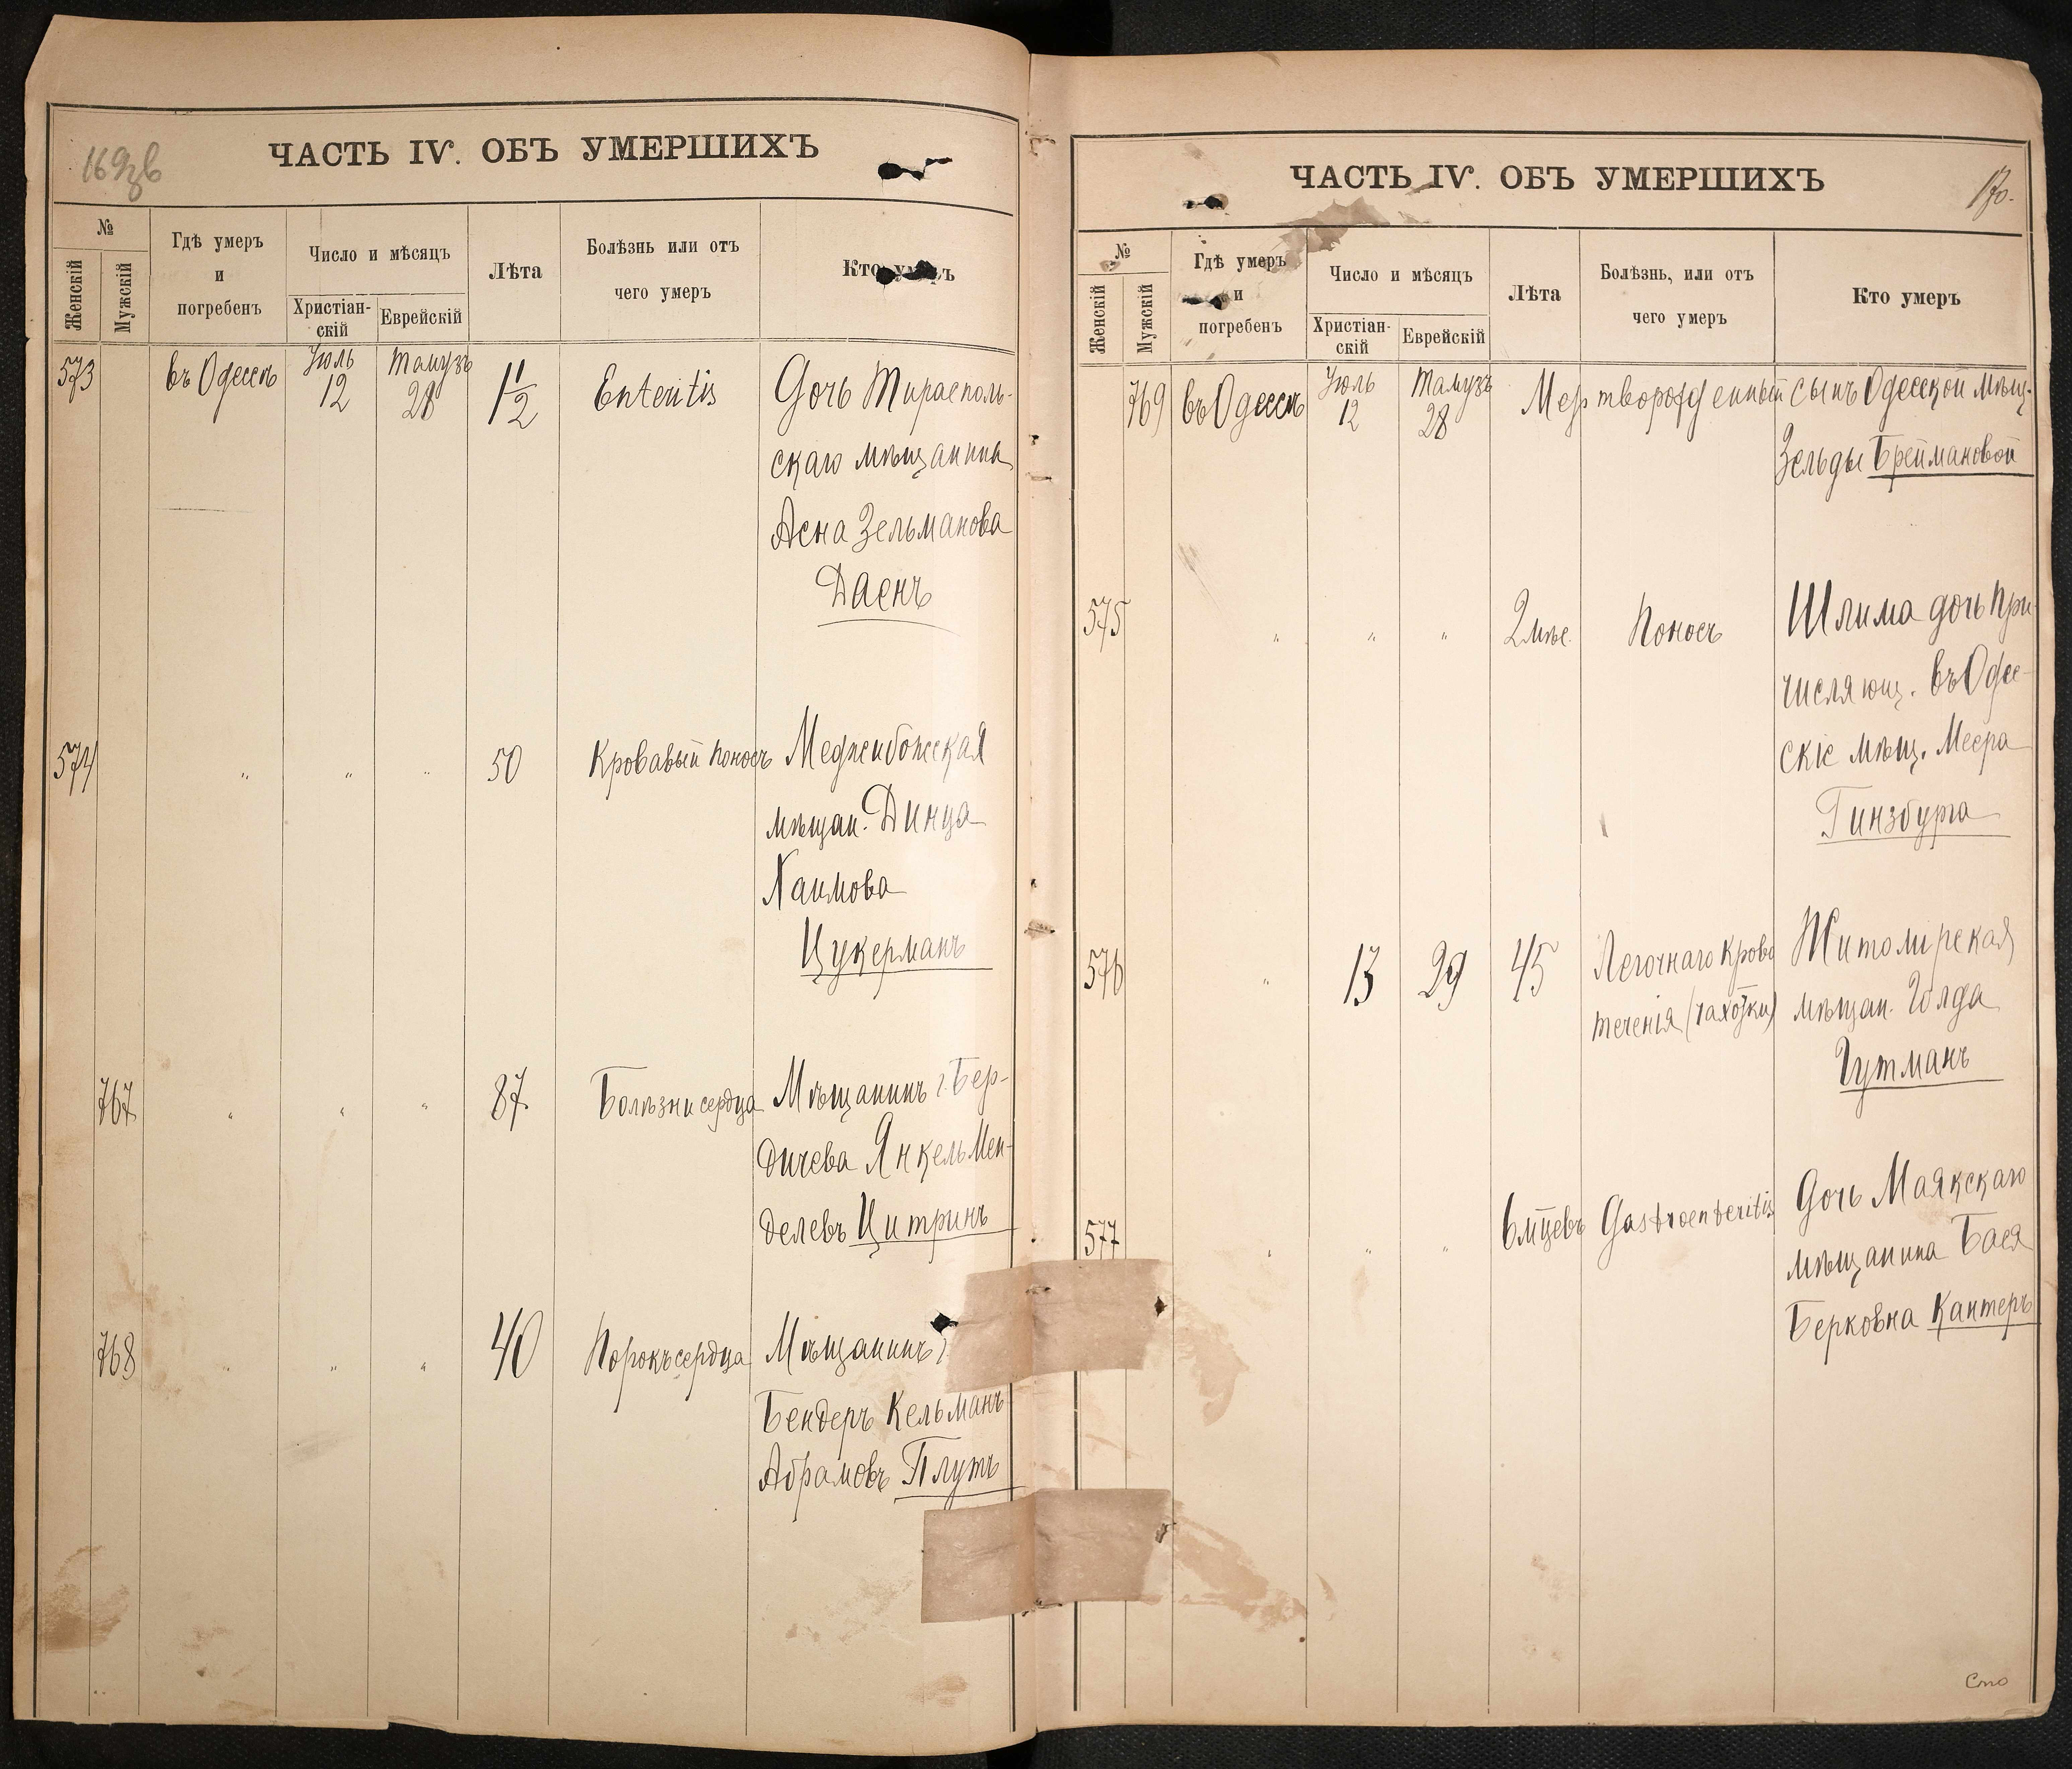 169зв
ЧАСТЬ IV. ОБЪ УМЕРШИХЪ
№
Женскій
Мужскій
Гдѣ умеръ
и
погребенъ
Число и мѣсяцъ
Христіан-
скій
Еврейскій
Лѣта
Болѣзнь или отъ
чего умеръ
Кто умеръ
573 въ Одессѣ Іюль 12 Тамузъ 28 1 1/2 Enteritis Дочь Тирасполь-
скаго мѣщанина
Асна Зельманова
Даенъ
574 " " " 50 Кровавый поносъ Меджибожская
мѣщан. Динца
Хаимова
Цукерманъ
767 " " " 87 Болѣзни сердца Мѣщанинъ г. Бер-
дичева Янкель Мен-
делевъ Цитринъ
768 " " " 40 Порокъ сердца Мѣщанинъ г.
Бендеръ Кельманъ
Абрамовъ Плутъ
ЧАСТЬ IV. ОБЪ УМЕРШИХЪ
170.
№
Женскій
Мужскій
Гдѣ умеръ
и
погребенъ
Число и мѣсяцъ
Христіан-
скій
Еврейскій
Лѣта
Болѣзнь, или отъ
чего умеръ
Кто умеръ
769 въ Одессѣ Іюль 12 Тамузъ 28 Мертворожденный сынъ Одесской мѣщ.
Зельды Бреймановой
575 " " " 2 мѣс. Поносъ Шлима дочь при-
числяющ. въ Одес-
скіе мѣщ. Меера
Гинзбурга
576 " 13 29 45 Легочнаго крово Житомирская
течения (чахотки) мѣщан. Голда
Гутманъ
577 " " " 6 мцевъ Gastroenteritis Дочь Маякскаго
мѣщанина Бася
Берковна Кантеръ
Сто